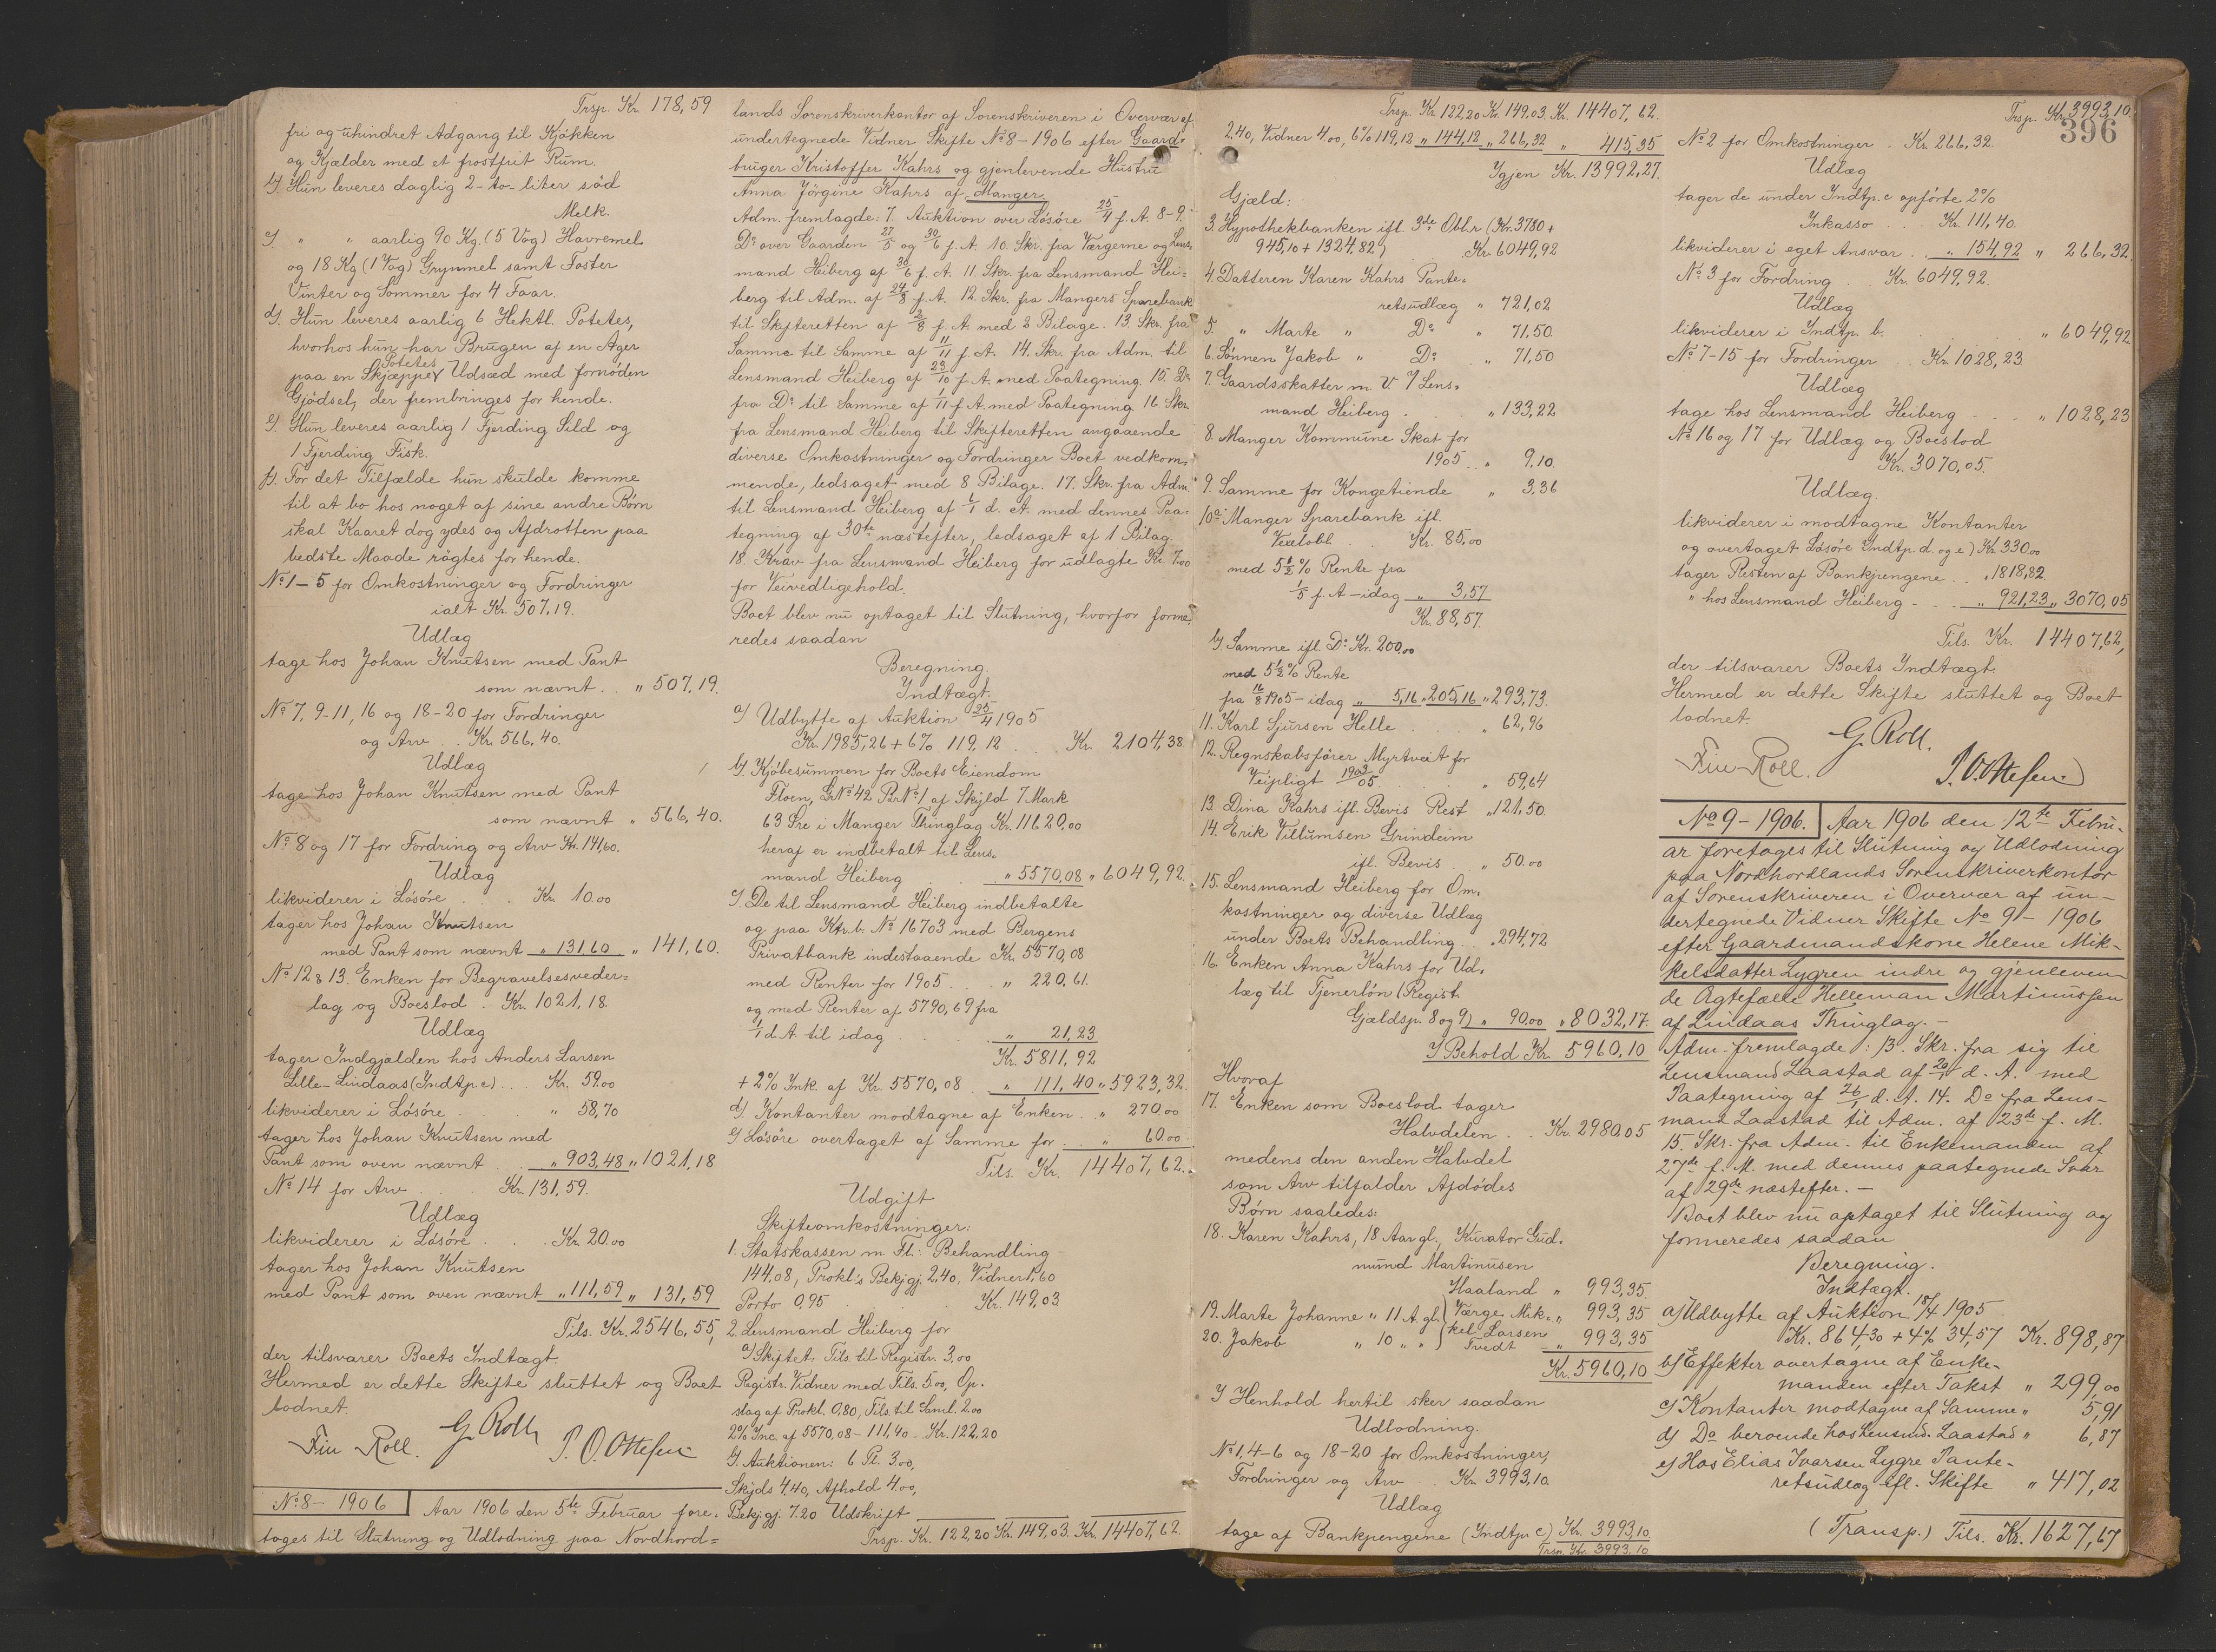 Trsp. Kr. 178,59
fri og uhindret Adgang til Kjøkken
og Kjælder med et frostfrit Rum.
b). Hun leveres daglig 2 - to - liter sød
Melk.
c). " " aarlig 90 Kg. (5 Vog) Havremel
og 18 Kg (1 Vog) Grynmel samt Foster
Vinter og Sommer for 4 Faar.
d). Hun leveres aarlig 6 Hektl. Potetes,
hvorhos hun har Brugen af en Ager
paa en Skjæppes Potetes Udsæd med fornøden
Gjødsel, der frembringes for hende.
e). Hun leveres aarlig 1 Fjerding Sild og
1 Fjerding Fisk.
f). For det Tilfælde hun skulde komme
til at bo hos noget af sine andre Børn
skal Kaaret dog ydes og Afdrotten paa
bedste Maade røgtes for hende.
No 1-5 for Omkostninger og Fordringer
ialt Kr. 507.19.
Udlæg
tage hos Johan Knutsen med Pant
som nævnt . . " 507,19.
No 7, 9-11, 16 og 18-20 for Fordringer
og Arv . . Kr. 566,40.
Udlæg
tage hos Johan Knutsen med Pant
som nævnt " 566,40.
No 8 og 17 for Fordring og Arv Kr. 141,60.
Udlæg
likviderer i Løsøre . . Kr. 10.00
tager hos Johan Knutsen
med Pant som nævnt " 131,60 " 141,60.
No 12 & 13. Enken for Begravelsesveder=
lag og Boeslod . Kr. 1021,18.
Udlæg
tager Indgjælden hos Anders Larsen
Lille-Lindaas (Indtp. c) . . Kr. 59.00
likviderer i Løsøre . . " 58,70
tager hos Johan Knutsen med
Pant som oven nævnt . . " 903,48 " 1021,18
No 14 for Arv . . Kr. 131,59.
Udlæg
likviderer i Løsøre . . Kr. 20.00
tager hos Johan Knutsen
med Pant som oven nævnt " 111,59 " 131,59
Tils. Kr. 2546,55,
der tilsvarer Boets Indtægt.
Hermed er dette Skifte sluttet og Boet
lodnet.
G. Roll
Finn Roll. J. O. Ottesen
No 8 - 1906 Aar 1906 den 5te Februar fore-
tages til Slutning og Udlodning paa Nordhord=
lands Sorenskriverkontor af Sorenskriveren i Overvær af
undertegnede Vidner Skifte No 8 - 1906 efter Gaard-
bruger Kristoffer Kahrs og gjenlevende Hustru
Anna Jörgine Kahrs af Manger.
Adm. fremlagde: 7. Auktion over Løsøre 25/4 f. A. 8-9.
Do over Gaarden 27/5 og 30/6 f. A. 10. Skr. fra Værgerne og Lens-
mand Heiberg af 30/6 f. A. 11. Skr. fra Lensmand Hei=
berg til Adm. af 24/8 f. A. 12. Skr. fra Mangers Sparebank
til Skifteretten af 2/8 f. A. med 2 Bilage. 13. Skr. fra
Samme til Samme af 11/11 f. A. 14. Skr. fra Adm. til
Lensmand Heiberg af 23/10 f. A. med Paategning. 15. Do
fra Do til Samme af 1/11 f. A. med Paategning 16. Skr.
fra Lensmand Heiberg til Skifteretten angaaende
diverse Omkostninger og Fordringer Boet vedkom-
mende, ledsaget med 8 Bilage. 17. Skr. fra Adm.
til Lensmand Heiberg af 6/1 d. A. med dennes Paa-
tegning af 30te næstefter, ledsaget af 1 Bilag
18. Krav fra Lensmand Heiberg for udlagte Kr. 7.00
for Veivedligehold.
Boet blev nu optaget til Slutning, hvorfor forme-
redes saadan
Beregning.
Indtægt.
a) Udbytte af Auktion 25/4 1905
Kr. 1985,26 + 6% 119,12 . . Kr. 2104,38
b). Kjøbesummen for Boets Eiendom
Floen, G.No 42 Br.No 1 af Skyld 7 Mark
63 Øre i Manger Thinglag Kr. 11620,00
heraf er indbetalt til Lens-
mand Heiberg . . " 5570,08 " 6049,92.
c). De til Lensmand Heiberg indbetalte
og paa Ktr.b. No 16703 med Bergens
Privatbank indestaaende Kr. 5570,08
med Renter for 1905 . . " 220,61.
og med Renter af 5790,69 fra
1/1 d. A til idag . . " 21,23
Kr. 5811,92
+ 2% Ink. af Kr. 5570,08 . . " 111,40 " 5923,32.
d). Kontanter modtagne af Enken . . " 270.00
e) Løsøre overtaget af Samme for . . " 60.00
Tils. Kr. 14407,62.
Udgift
Skifteomkostninger:
1. Statskassen m. Fl.: Behandling
144,08, Prokl.s Bekjgj. 2,40, Vidner 1,60
Porto 0,95 . . Kr. 149,03
2. Lensmand Heiberg for
a) Skiftet: Tils. til Registr. 3.00
Registr. Vidner med Tils. 5.00, Op-
slag af Prokl. 0,80, Tils. til Saml. 2.00
2% Inc. af 5570,08 - 111,40 . Kr. 122,20
b). Auktionen: 6 Pl. 3.00,
Skyds 4,40, Afhold 4.00,
Bekjgj. 7.20 Udskrift
Trsp. Kr. 122,20 Kr. 149,03. Kr. 14407,62.
Trsp. Kr. 122,20 Kr. 149.03. Kr. 14407,62.
2,40, Vidner 4.00, 6% 119,12 " 144,12 " 266,32 " 415,35
Igjen Kr. 13992,27.
Gjæld:
3. Hypothekbanken ifl. 3de Obl.r (Kr. 3780 +
945,10 + 1324,82) Kr. 6049,92
4. Datteren Karen Kahrs Pante-
retsudlæg " 721,02
5. " Marte " Do " 71,50
6. Sønnen Jakob " Do " 71,50
7. Gaardsskatter m. V. / Lens-
mand Heiberg . . " 133,22
8. Manger Kommune Skat for
1905 . . " 9,10.
9. Samme for Kongetiende " 3,36
10a Manger Sparebank ifl.
Vexelobl. . Kr. 85.00
med 5½% Rente fra
1/5 f. A - idag " 3,57
Kr. 88,57.
b). Samme ifl. Do Kr. 200.00
med 5½% Rente
fra 16/8 1905 - idag " 5,16 " 205,16 " 293,73.
11. Karl Sjursen Helle . . " 62,96
12. Regnskabsfører Myrtveit for
Veipligt 1903/05 . . " 59,64
13. Dina Kahrs ifl. Bevis Rest " 121,50.
14. Erik Villumsen Grindeim
ifl. Bevis . . " 50.00
15. Lensmand Heiberg for Om-
kostninger og diverse Udlæg
under Boets Behandling . . " 294,72
16. Enken Anna Kahrs for Ud-
læg til Tjenerløn (Regist.
Gjældsp. 8 og 9) " 90.00 " 8032,17.
I Behold Kr. 5960,10
Hvoraf
17. Enken som Boeslod tager
Halvdelen . . Kr. 2980,05
medens den anden Halvdel
som Arv tilfalder Afdødes
Børn saaledes:
18. Karen Kahrs, 18 Aar gl., Kurator Gud-
mund Martinusen
Haaland " 993,35.
19. Marte Johanne " 11 A. gl. } Værge Mik- " 993,35
20. Jakob " 10 " " } kel Larsen Tvedt " 993,35
Kr. 5960,10
I Henhold hertil sker saadan
Udlodning.
No 1, 4-6 og 18-20 for Omkostninger,
Fordringer og Arv . . Kr. 3993,10.
Udlæg
tage af Bankpengene (Indtp. c) Kr. 3993,10
Trsp. Kr. 3993,10
Trsp. Kr. 3993,10.
396
No 2 for Omkostninger . Kr. 266,32.
Udlæg
tager de under Indtp. c opførte 2%
Inkasso . . Kr. 111,40.
likviderer i eget Ansvar . . " 154,92 " 266,32
No 3 for Fordring . . Kr. 6049,92.
Udlæg
likviderer i Indtp. b. . . " 6049,92.
No 7-15 for Fordringer . . Kr. 1028,23
Udlæg
tage hos Lensmand Heiberg . . " 1028,23
No 16 og 17 for Udlæg og Boeslod
Kr. 3070,05.
Udlæg.
likviderer i modtagne Kontanter
og overtaget Løsøre (Indtp. d. og e.) Kr. 330.00
tager Resten af Bankpengene . . " 1818,82.
" hos Lensmand Heiberg - . . " 921,23 " 3070,05
Tils. Kr. 14407,62,
der tilsvarer Boets Indtægt.
Hermed er dette Skifte sluttet og Boet
lodnet.
G. Roll.
Finn Roll. J. O. Ottesen
No 9 - 1906. Aar 1906 den 12te Febru-
ar foretages til Slutning og Udlodning
paa Nordhordlands Sorenskriverkontor
af Sorenskriveren i Overvær af un-
dertegnede Vidner Skifte No 9 - 1906
efter Gaardmandskone Helene Mik-
kelsdatter Lygren indre og gjenleven-
de Ægtefælle Helleman Martinussen
af Lindaas Thinglag. -
Adm. fremlagde: 13. Skr. fra sig til
Lensmand Laastad af 20/1 d. A. med
Paategning af 26/1 d. A. 14. Do fra Lens-
mand Laastad til Adm. af 23de f. M.
15. Skr. fra Adm. til Enkemanden af
27de f. M. med dennes paategnede Svar
af 29de næstefter. -
Boet blev nu optaget til Slutning og
formeredes saadan
Beregning.
Indtægt.
a) Udbytte af Auktion 18/4 1905
Kr. 864,30 + 4% 34,57 Kr. 898,87
b) Effekter overtagne af Enke-
manden efter Takst " 299,00
c) Kontanter modtagne af Samme " 5,91
d) Do beroende hos Lensmd. Laastad " 6,87
e) Hos Elias Ivarsen Lygre Pante-
retsudlæg ifl. Skifte " 417,02
(Transp.) Tils. Kr. 1627,67